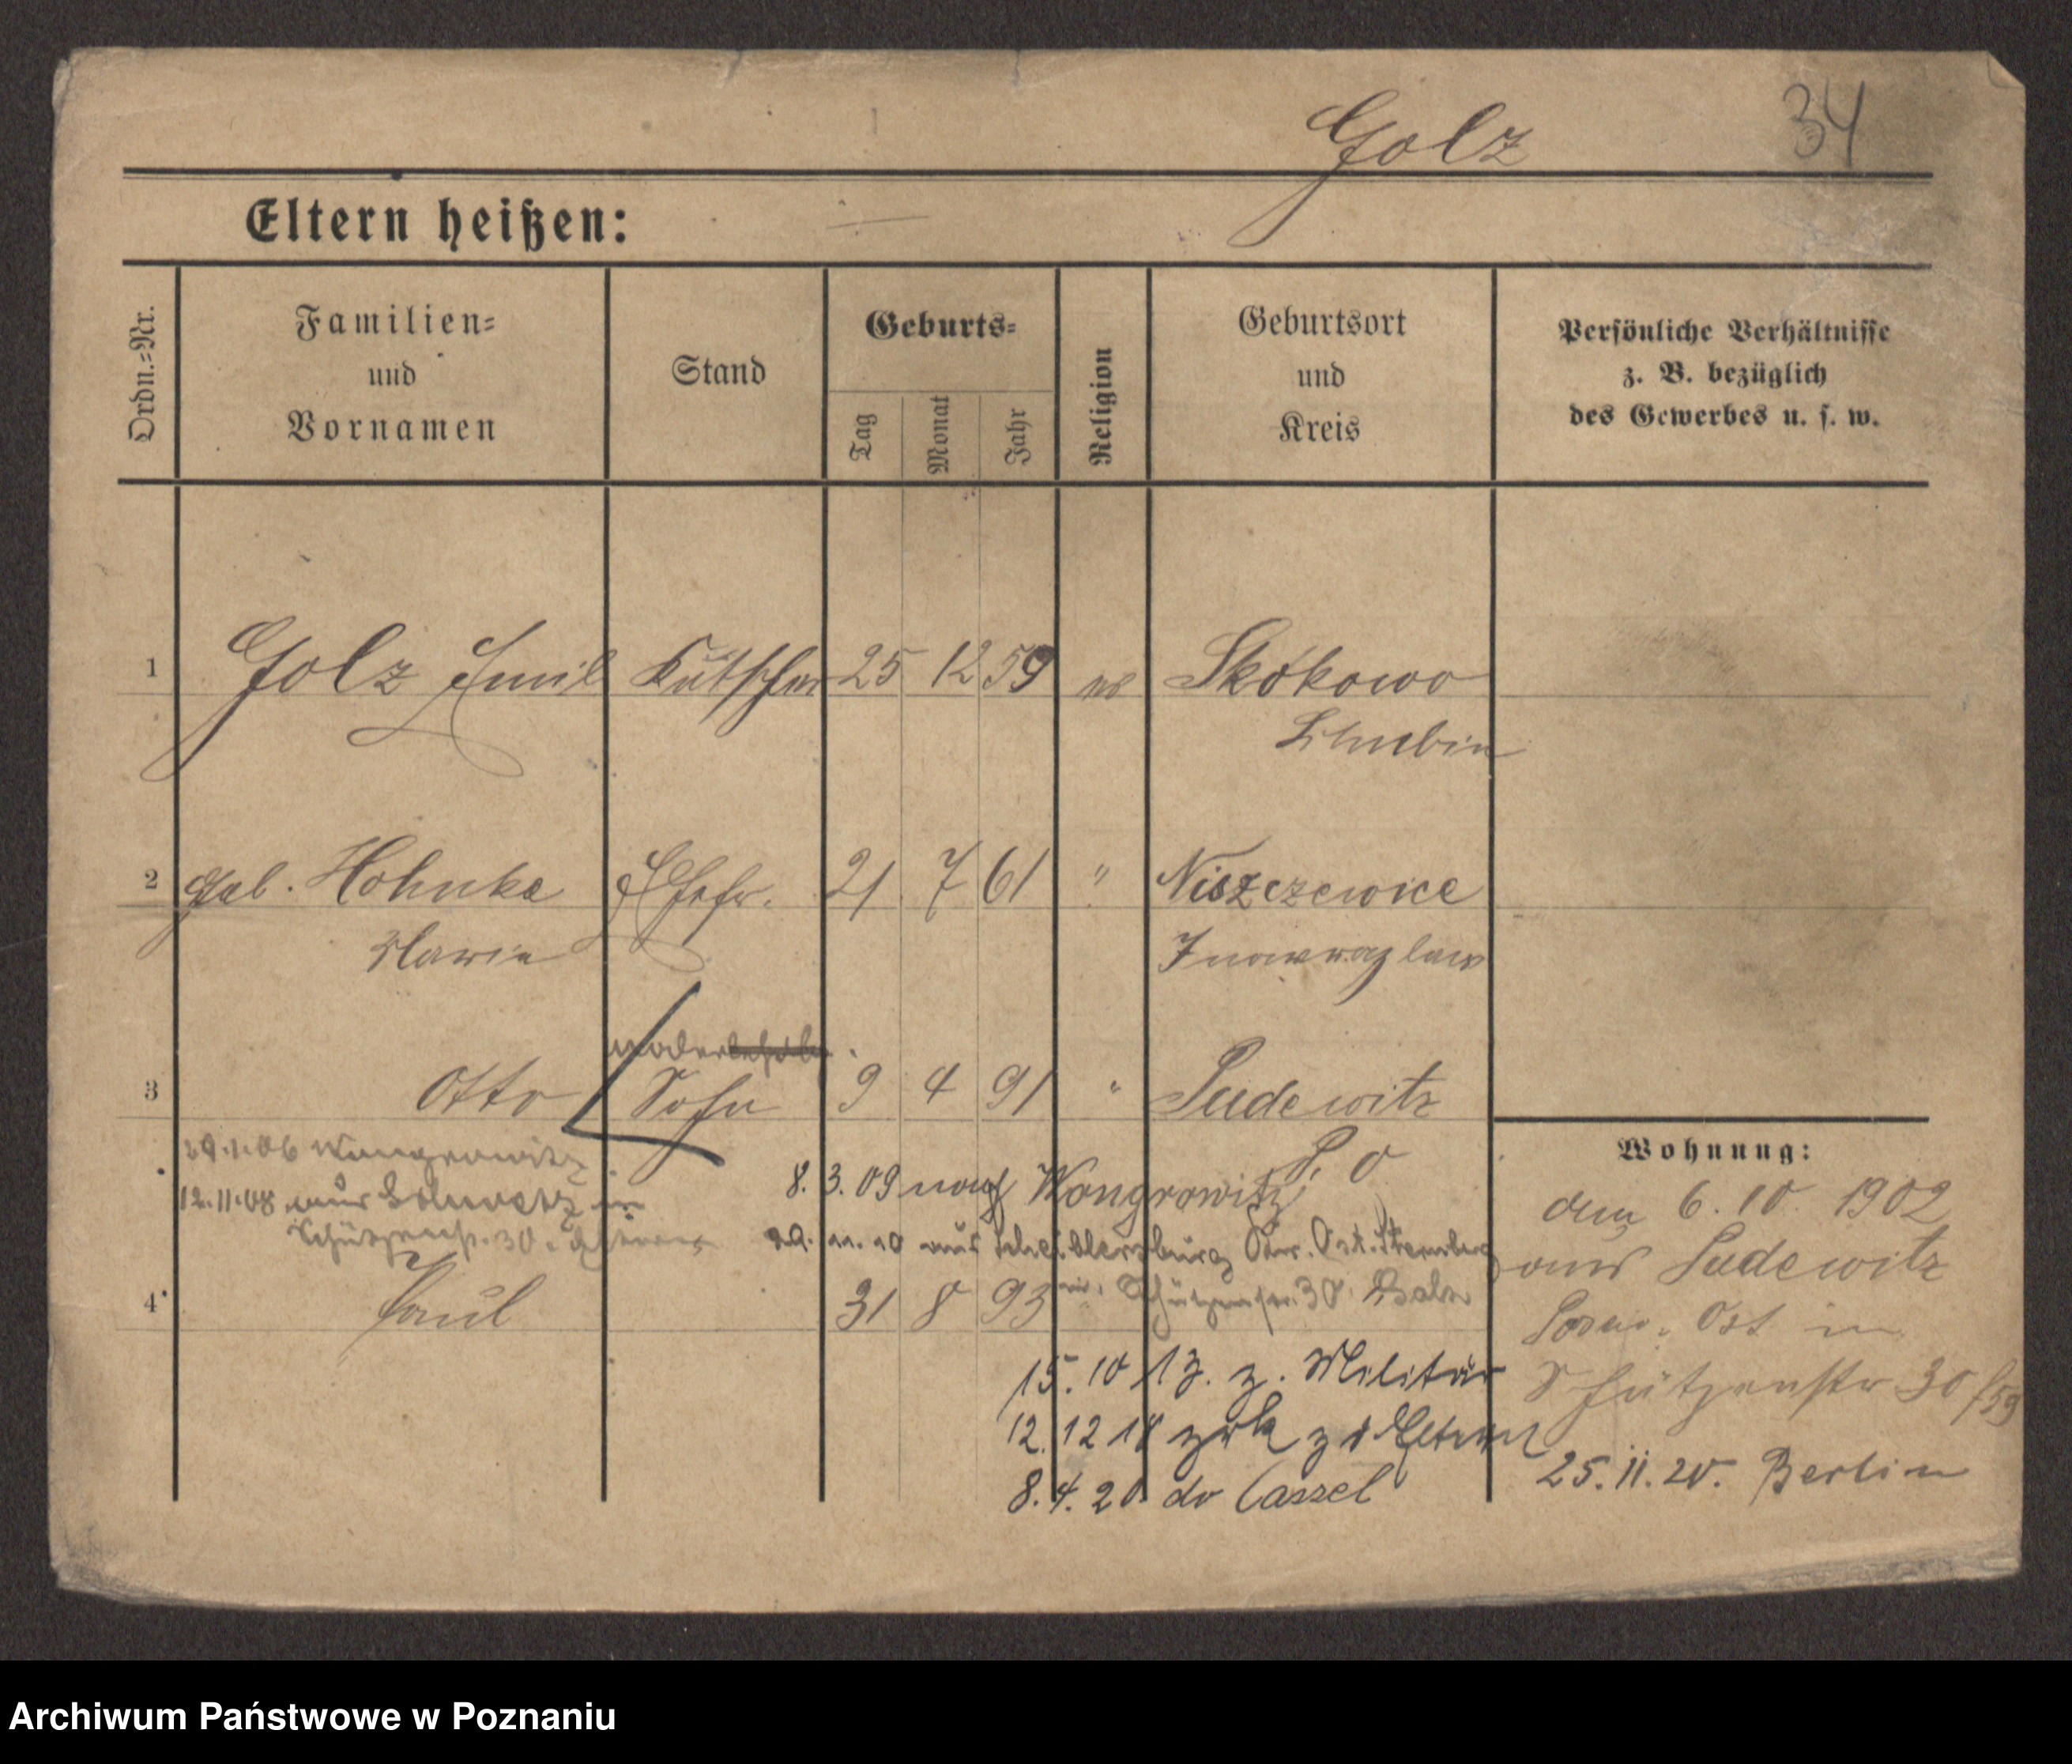 Golz 34
Eltern heißen:
Ordn.=Nr.
Familien=
und
Vornamen
Stand
Geburts=
Tag
Monat
Jahr
Religion
Geburtsort
und
Kreis
Persönliche Verhältnisse
z. B. bezüglich
des Gewerbes u. s. w.
1 Golz Emil Kutscher 25 12 59 ev Skokowo
Schubin
2 geb. Hohnke Ehefr. 21 7 61 " Niszczewice
Marie Inowrazlaw
3 Otto Sohn 9 4 91 " Pudewitz
P. O
29.1.06 Wongrowitz
12.11.08 aus in
Schützenstr. 30
8.3.09 nach Wongrowitz
aus Ost-Sternberg
Schützenstr. 30
4 Paul 31 8 93
15.10 13. z. Militär
12.12 18 zrk z d Eltern
8.4.20 do Cassel
Wohnung:
den 6. 10. 1902
aus Pudewitz
Posen. Ost in
Schützenstr 30
25.11.20. Berlin
Archiwum Państwowe w Poznaniu